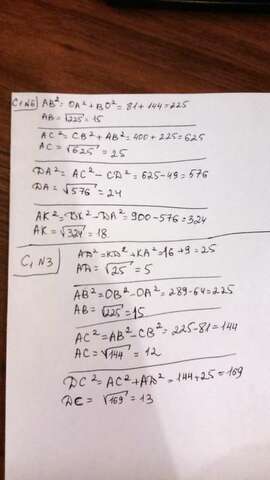 C1 N6) AB² = OA² + BO² = 81 + 144 = 225
AB = √225 = 15
AC² = CB² + AB² = 400 + 225 = 625
AC = √625 = 25
DA² = AC² - CD² = 625 - 49 = 576
DA = √576 = 24
AK² = DK² - DA² = 900 - 576 = 324
AK = √324 = 18.
C1 N3 AD² = KD² + KA² = 16 + 9 = 25
AD = √25 = 5
AB² = OB² - OA² = 289 - 64 = 225
AB = √225 = 15
AC² = AB² - CB² = 225 - 81 = 144
AC = √144 = 12
DC² = AC² + AD² = 144 + 25 = 169
DC = √169 = 13